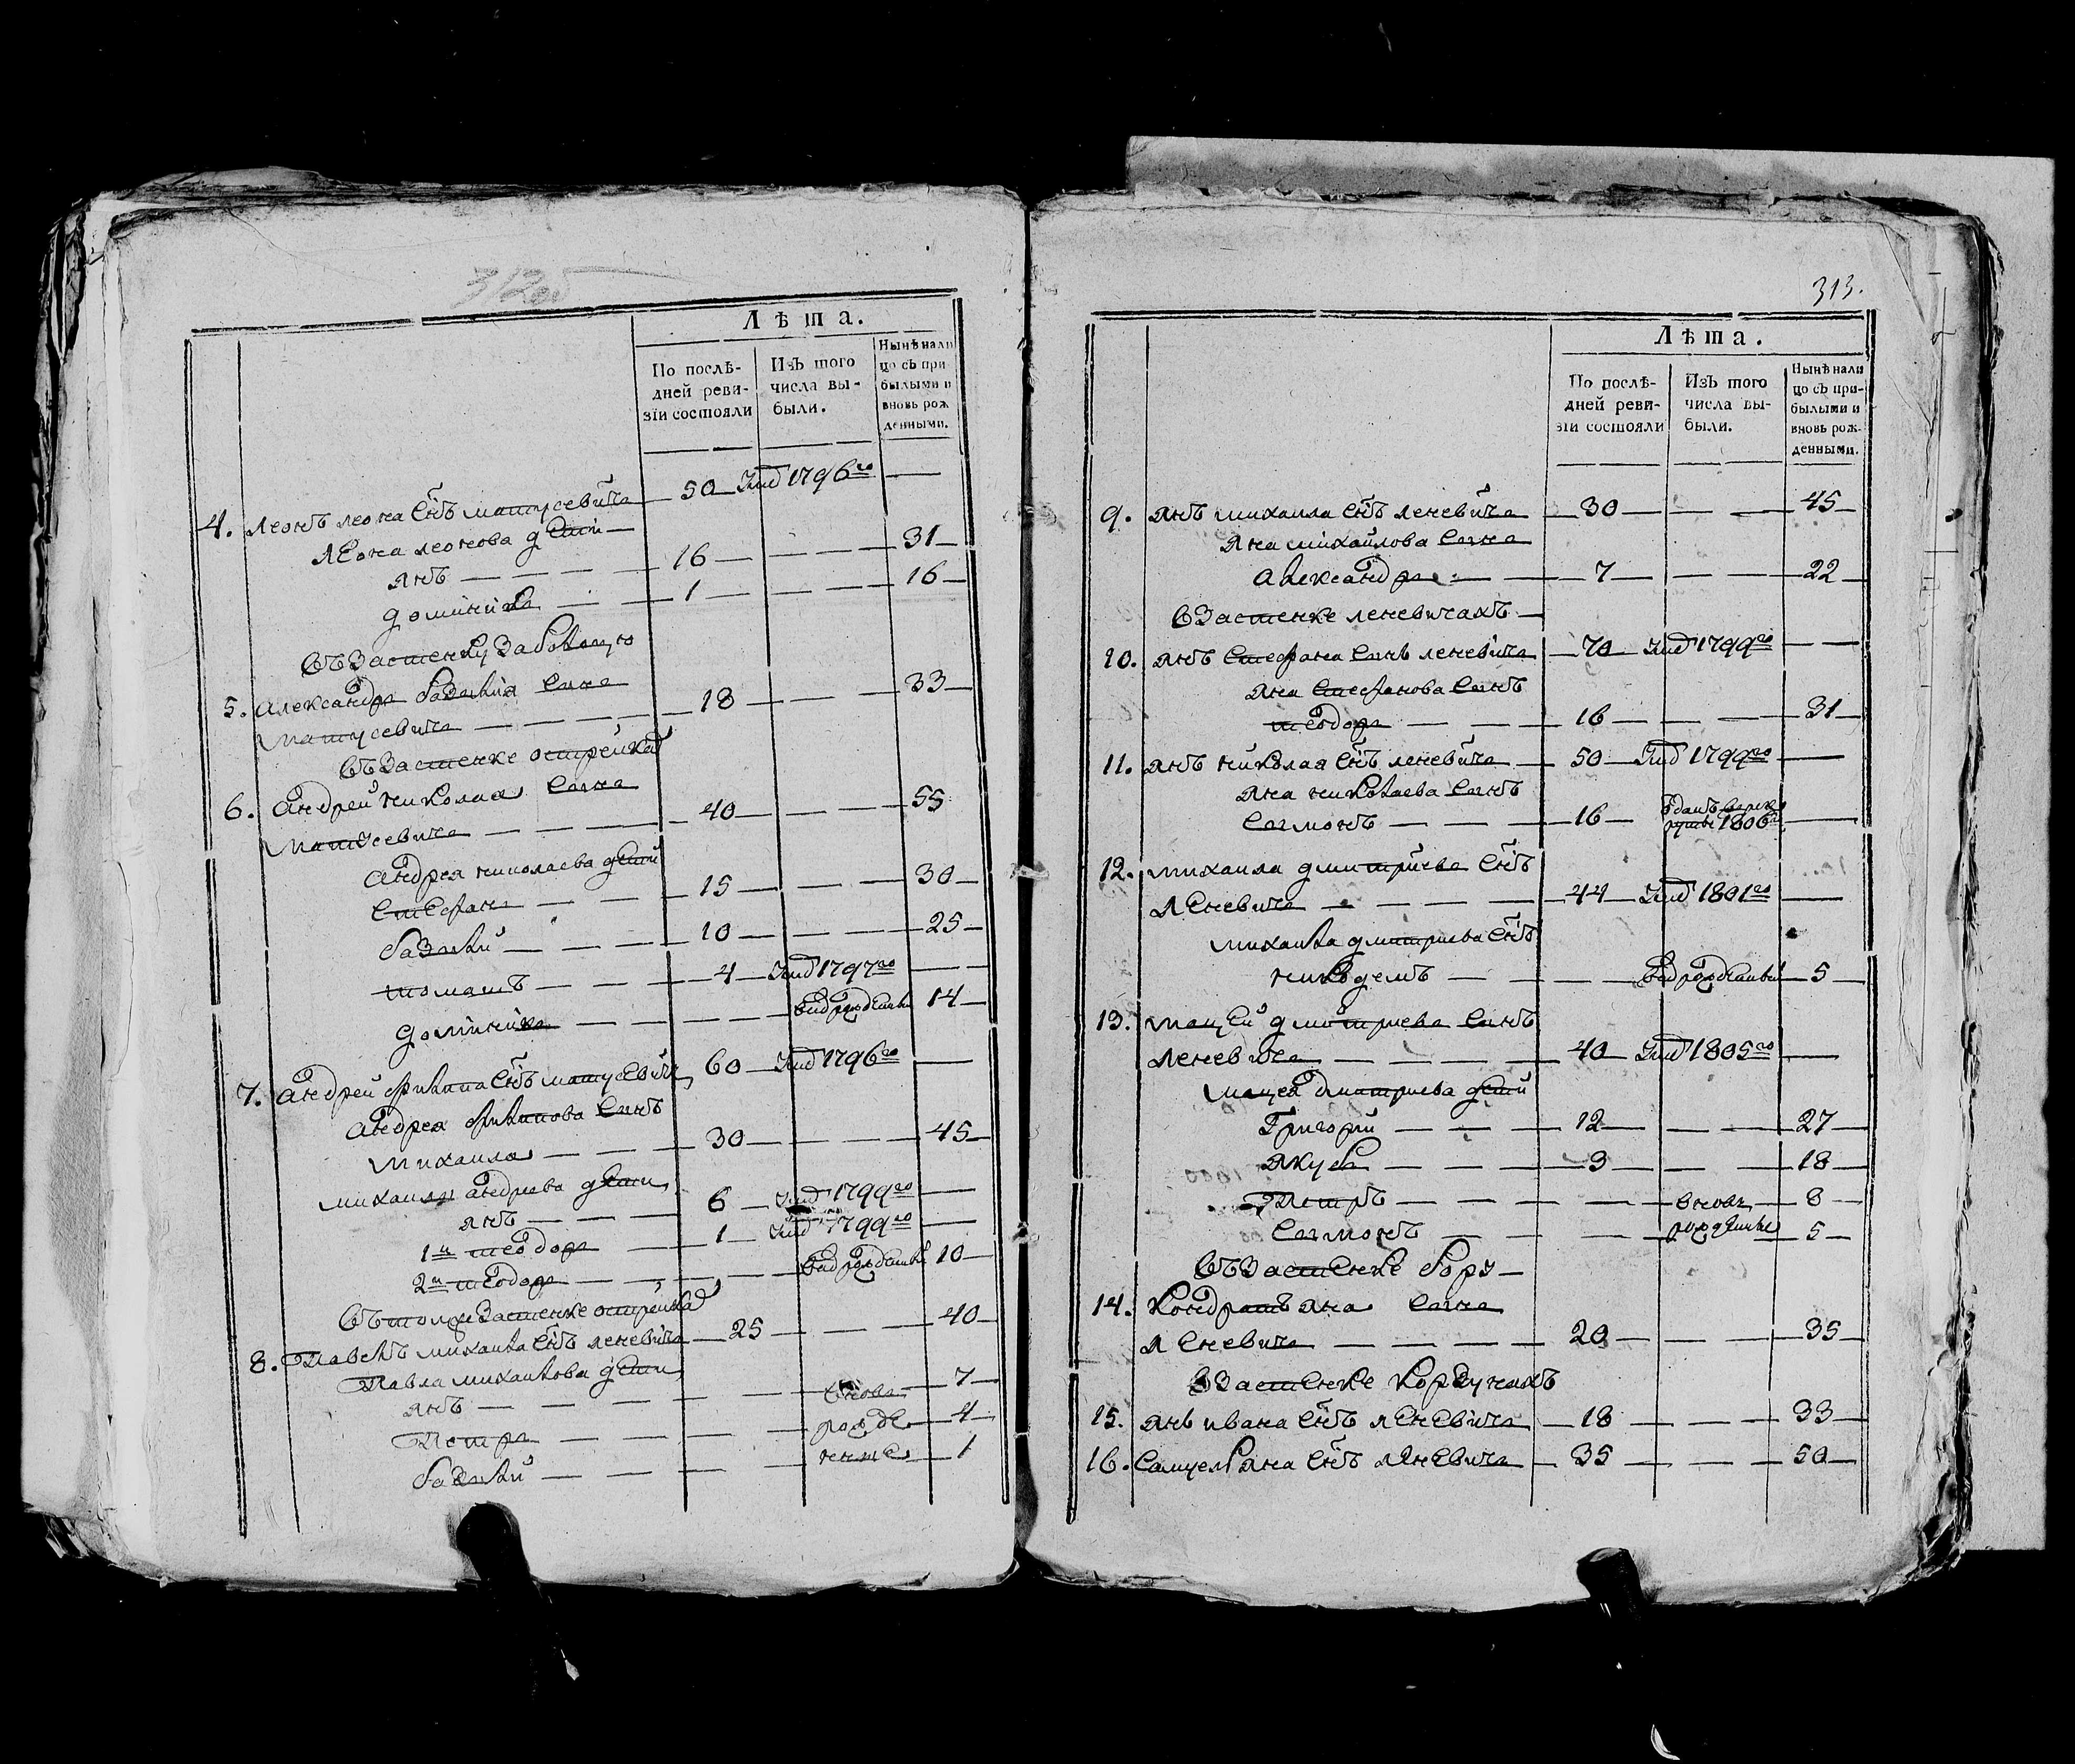 312об
Лѣта.
По послѣдней ревизіи состояли
Изъ того числа выбыли.
Нынѣ налицо съ прибылыми и вновь рожденными.
4. Леонъ леона снъ матусевича — 50 — Умѣ 1796го —
Леона леонова дети —
янъ — — — — 16 — — — — 31 —
доминика — — 1 — — — — 16 —
Въ Застенку Заболотю
5. Александръ базылия сына
матусевича — — — — 18 — — — 33 —
Въ Застенке острейках
6. Андрей николая сына
матусевича — — — — 40 — — — 55
Андрея николаева детй
Стефанъ — — — 15 — — — 30 —
базылй — — — — 10 — — — 25 —
томашъ — — — — 4 — Умѣ 1797го — —
доминика — — — — — — внѣ рожденны 14 —
7. Андрей филипа снъ матусевича 60 — Умѣ 1796го —
Андрея филипова сынъ
михаила — — — 30 — — — — 45 —
михаила андриева дети
янъ — — — 6 — Умѣ 1799го —
1й теодоръ — 1 — Умѣ 1799го —
2й теодоръ — — — — — внѣ рожденны 10 —
Въ томже Застенке острейках
8. Павелъ михаила снъ леневича — 25 — — — 40 —
Павла михаилова дети
янъ — — — — — — вновь — 7 —
Петръ — — — — — рожде — 4 —
базылй — — — — — нные — 1
313.
Лѣта.
По послѣдней ревизіи состояли
Изъ того числа выбыли.
Нынѣ налицо съ прибылыми и вновь рожденными.
9. янъ михаила снъ леневича — 30 — — — 45 —
яна михаилова сына
александръ — — 7 — — — 22 —
В Застенке леневичахъ —
10. янъ Стефана сынъ леневича — 70 — Умѣ 1799го — —
яна Стефанова сынъ
теодоръ — — — 16 — — — 31 —
11. янъ николая снъ леневича — 50 — Умѣ 1799го —
яна николаева сынъ
сымонъ — — — 16 — ѡданъ врекруты 1806го —
12. михаила дмитриева снъ
леневича — — — — 44 — Умѣ 1801го —
михаила дмитриева снъ
никодемъ — — — внѣ рожденный — 5 —
13. мацей дмитриева сынъ
леневича — — — — 40 — Умѣ 1805го —
мацея дмитриева детй
Григорий — — — 12 — — — 27 —
якубъ — — — — 3 — — — 18 —
Петръ — — — — — вновь — 8 —
сымонъ — — — — рожденные — 5 —
Въ Застенке бору —
14. Кондратъ яна сына
леневича — — — — 20 — — — 35 —
В Застенке Кордунахъ
15. янъ ивана снъ леневича — 18 — — — 33 —
16. Самуелъ яна снъ леневича — 35 — — — 50 —